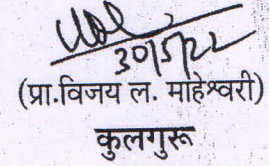 30/5/22
(प्रा.विजय ल. माहेश्वरी)
कुलगुरू